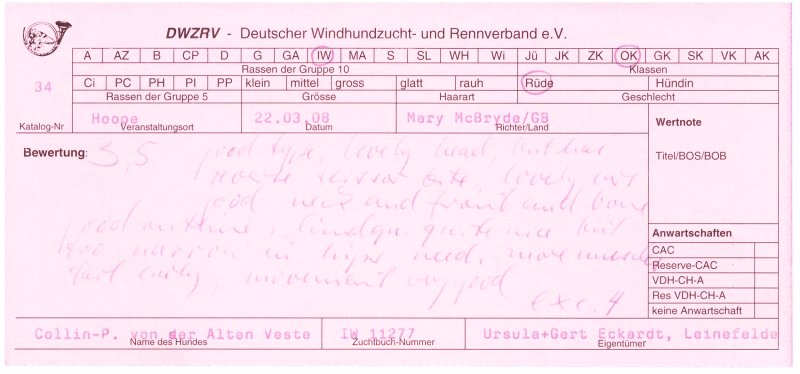 DWZRV - Deutscher Windhundzucht- und Rennverband e.V.
A AZ B CP D G GA IW MA S SL WH Wi Jü JK ZK OK GK SK VK AK
Rassen der Gruppe 10 Klassen
34 Ci PC PH PI PP klein mittel gross glatt rauh Rüde Hündin
Rassen der Gruppe 5 Grösse Haarart Geschlecht
Hoope 22.03.08 Mary McBryde/GB Wertnote
Katalog-Nr Veranstaltungsort Datum Richter/Land
Bewertung: 3,5 good type, lovely head
Titel/BOS/BOB
scissor bite lovely
good neck and front and bone
good quite nice but
too narrow in need, more
movement very good
exc. 4
Anwartschaften
CAC
Reserve-CAC
VDH-CH-A
Res VDH-CH-A
keine Anwartschaft
Collin-P. von der Alten Veste IW 11277 Ursula+Gert Eckardt, Leinefelde
Name des Hundes Zuchtbuch-Nummer Eigentümer